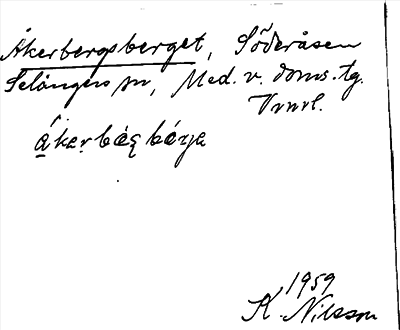 Åkerbergsberget, Söderåsen
Selångers sn, Med. v. doms. tg.
Vrnrl.
åkerbæ̨rbærje
1959
K. Nilsson